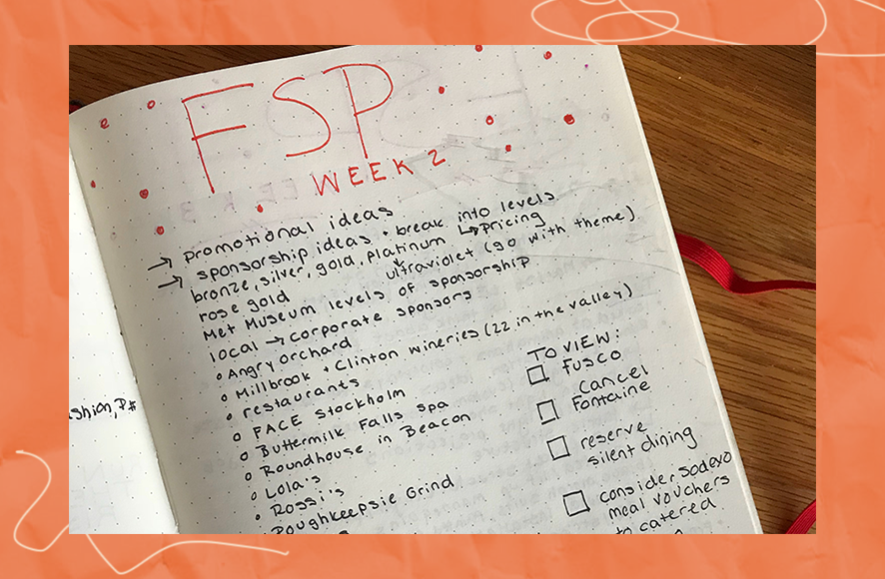 FSP
WEEK 2
→ promotional ideas
→ sponsorship ideas + break into levels
bronze, silver, gold, platinum ↳ pricing
rose gold
ultraviolet (go with theme)
Met Museum levels of sponsorship
local → corporate sponsors
• Angry orchard
• Millbrook + Clinton wineries (22 in the valley)
• restaurants
• FACE Stockholm
• Buttermilk Falls Spa
• Roundhouse in Beacon
• Lola's
• Rossi's
Poughkeepsie Grind
TO VIEW:
☐ FUSCO
☐ cancel
Fontaine
☐ reserve
silent dining
☐ consider sodexo
meal vouchers
to catered